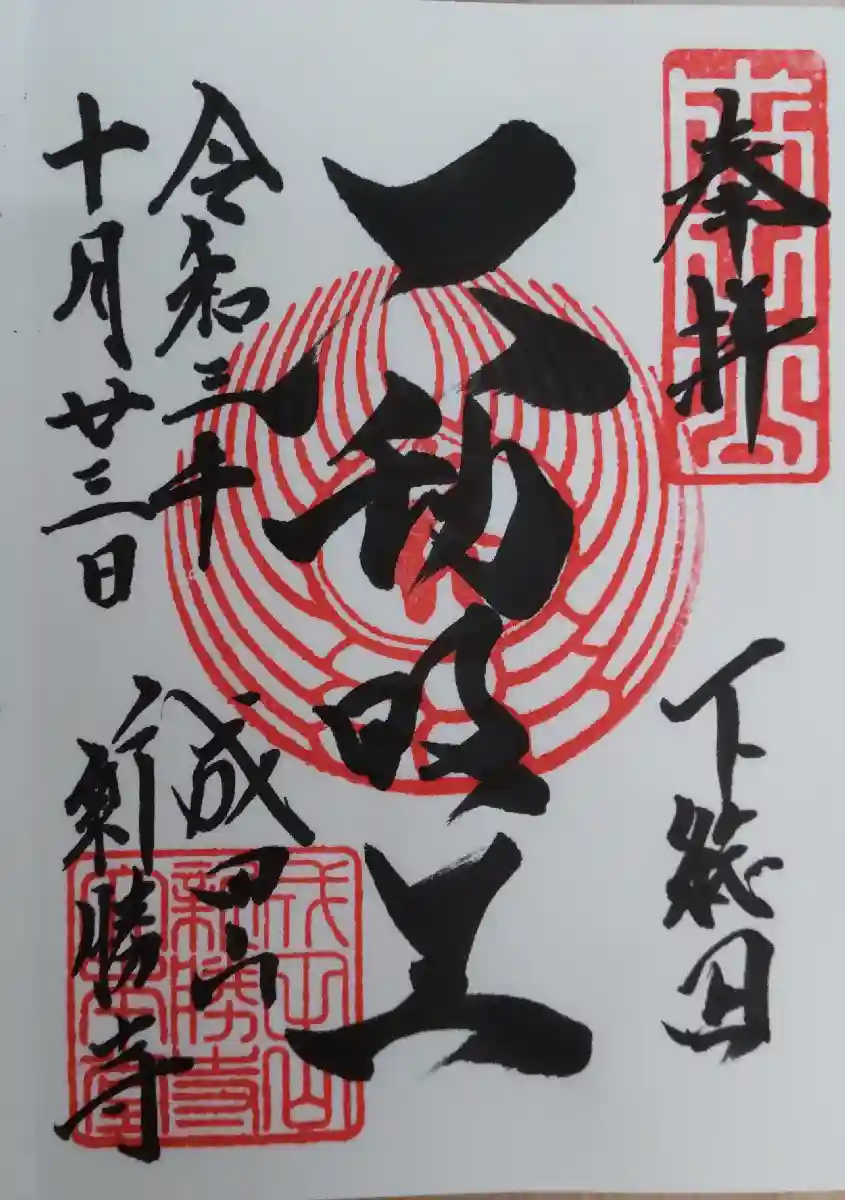 奉拝
下総国
不動明王
令和三年
十月廿三日
成田山
新勝寺
成田山
新勝寺